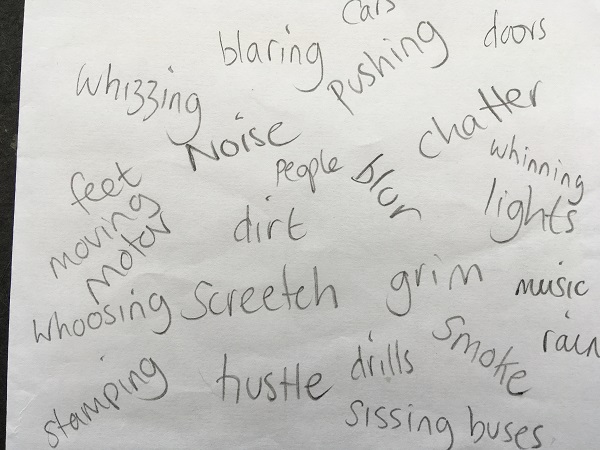 cars
blaring
pushing
doors
whizzing
Noise
chatter
people
blur
whinning
feet
moving
Motor
dirt
lights
whoosing
screetch
grim
music
stamping
hustle
drills
smoke
rain
sissing buses